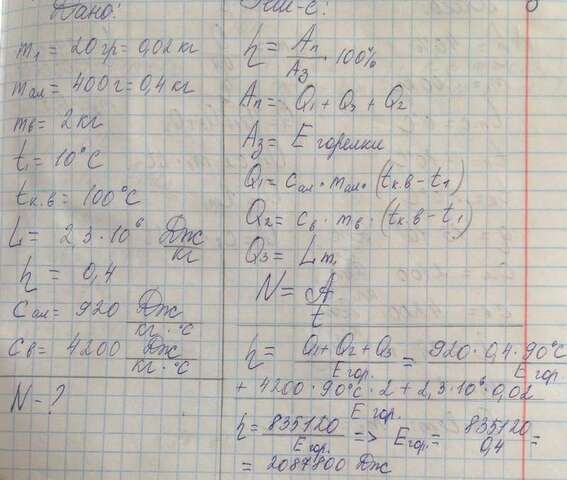 Дано:
m₁ = 20гр = 0,02 кг
mал = 400 г = 0,4 кг
mв = 2 кг
t₁ = 10°C
tк.в = 100°C
L = 2,3 · 10⁶ Дж/кг
η = 0,4
Cал = 920 Дж/кг · °C
Cв = 4200 Дж/кг · °C
N - ?
η = Aп/Aз · 100%
Aп = Q₁ + Q₃ + Q₂
Aз = E горелки
Q₁ = Cал · mал · (tк.в - t₁)
Q₂ = Cв · mв · (tк.в - t₁)
Q₃ = Lm₁
N = A/t
η = Q₁ + Q₂ + Q₃/E гор. = 920 · 0,4 · 90°C/E гор.
+ 4200 · 90°C · 2 + 2,3 · 10⁶ · 0,02/E гор.
η = 835120/E гор. => E гор. = 835120/0,4 =
= 2087800 Дж